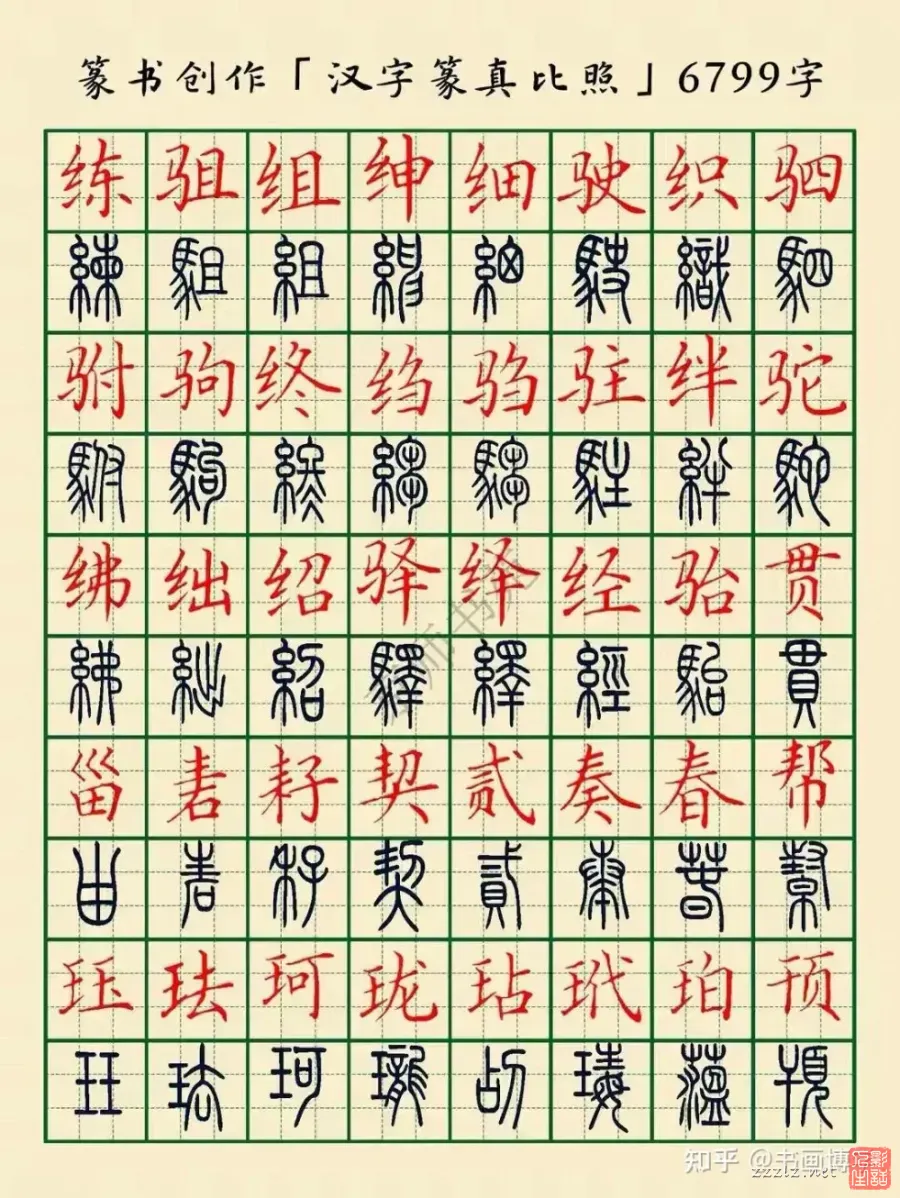 篆书创作「汉字篆真比照」6799字
练驵组绅细驶织驷
練駔組紳細駛織駟
驸驹终绉驺驻绊驼
駙駒終縐騶駐絆駝
绋绌绍驿绎经骀贯
紼絀紹驛繹經駘貫
甾砉耔契贰奏春帮
甾砉耔契貳奏春
珏珐珂珑玷玳珀顸
珏珐珂瓏頇
知乎 @书画博